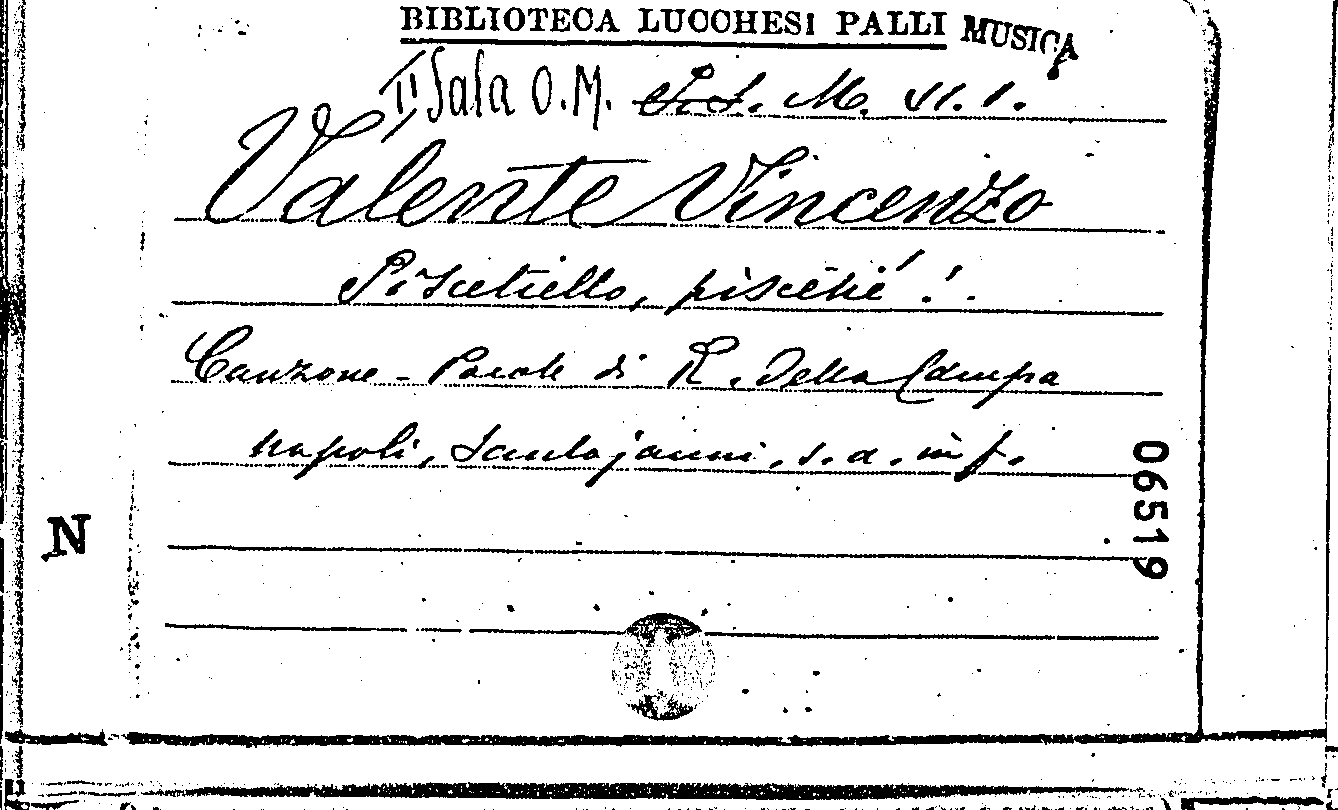 BIBLIOTECA LUCCHESI PALLI MUSICA
II Sala O.M. S.S. M. VI.1.
Valente Vincenzo
Piscetiello, piscehé!.
Canzone - Parole di R. Della Campa
Napoli, Santojanni, s.a. in f.
06519
N